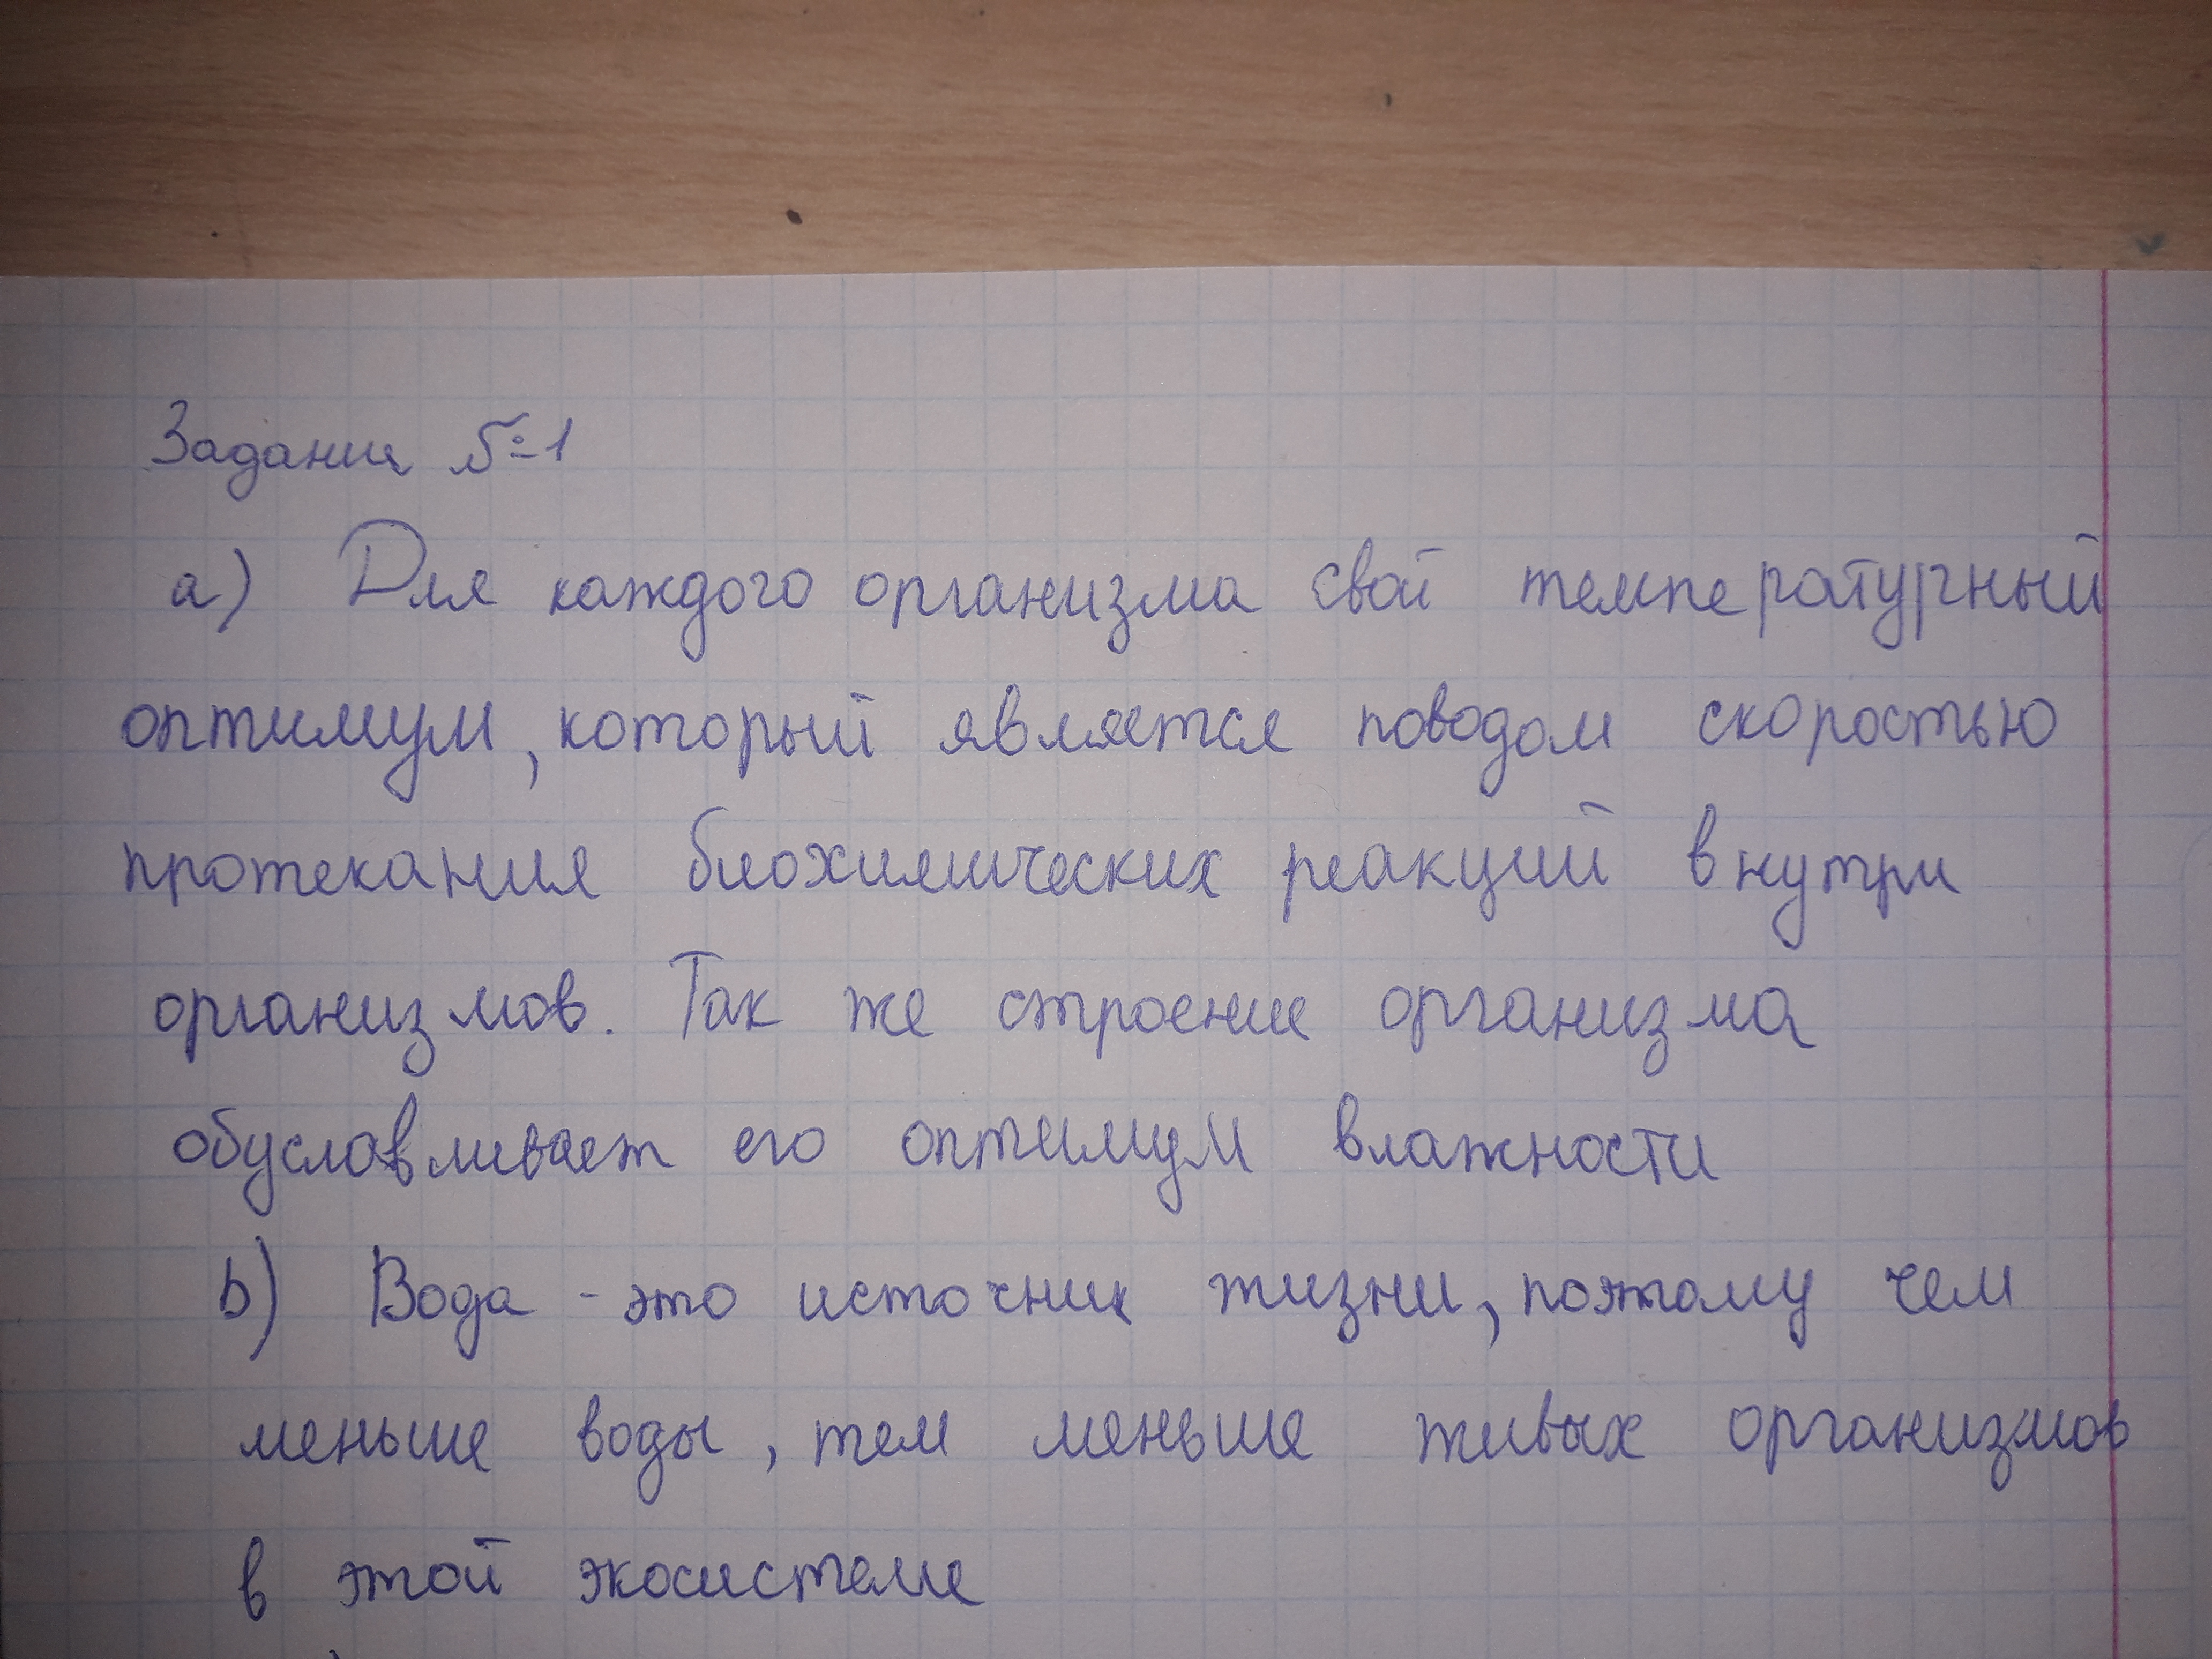 Задание №1
а) Для каждого организма свой температурный
оптимум, который является поводом скоростью
протекания биохимических реакций внутри
организмов. Так же строение организма
обуславливает его оптимум влажности
b) Вода - это источник жизни, поэтому чем
меньше воды, тем меньше живых организмов
в этой экосистеме